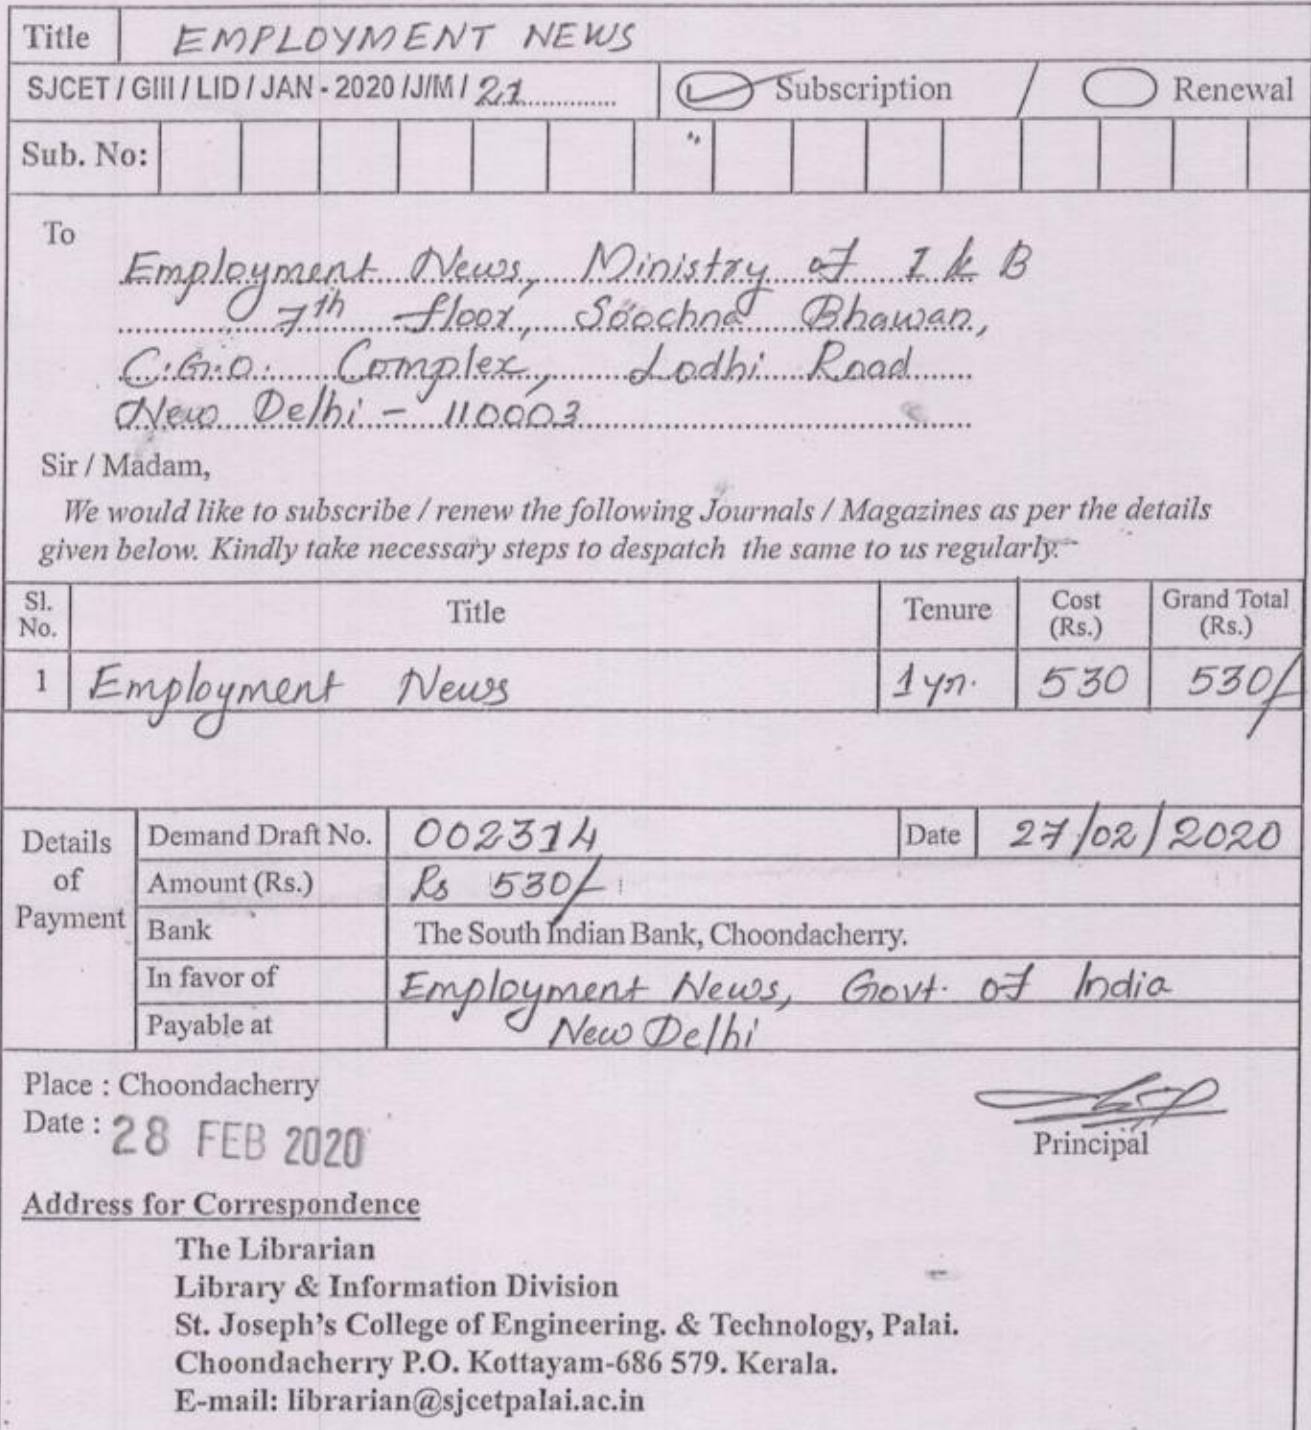 Title EMPLOYMENT NEWS
SJCET / GIII / LID / JAN - 2020 /J/M / 21 Subscription / Renewal
Sub. No:
To
Employment News, Ministry of I & B
7th floor, Soochna Bhawan,
C.G.O. Complex, Lodhi Road
New Delhi - 110003
Sir / Madam,
We would like to subscribe / renew the following Journals / Magazines as per the details
given below. Kindly take necessary steps to despatch the same to us regularly.
Sl. No. Title Tenure Cost (Rs.) Grand Total (Rs.)
1 Employment News 1 yr. 530 530/-
Details of Payment
Demand Draft No. 002314 Date 27/02/2020
Amount (Rs.) Rs 530/-
Bank The South Indian Bank, Choondacherry.
In favor of Employment News, Govt. of India
Payable at New Delhi
Place : Choondacherry
Date : 28 FEB 2020
Principal
Address for Correspondence
The Librarian
Library & Information Division
St. Joseph's College of Engineering. & Technology, Palai.
Choondacherry P.O. Kottayam-686 579. Kerala.
E-mail: librarian@sjcetpalai.ac.in